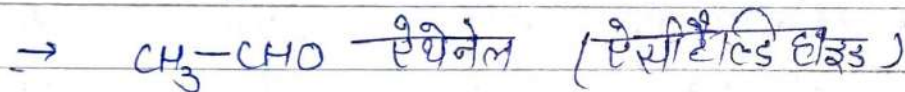 → CH₃-CHO ऐथेनेल (ऐसीटैल्डि हाइड)